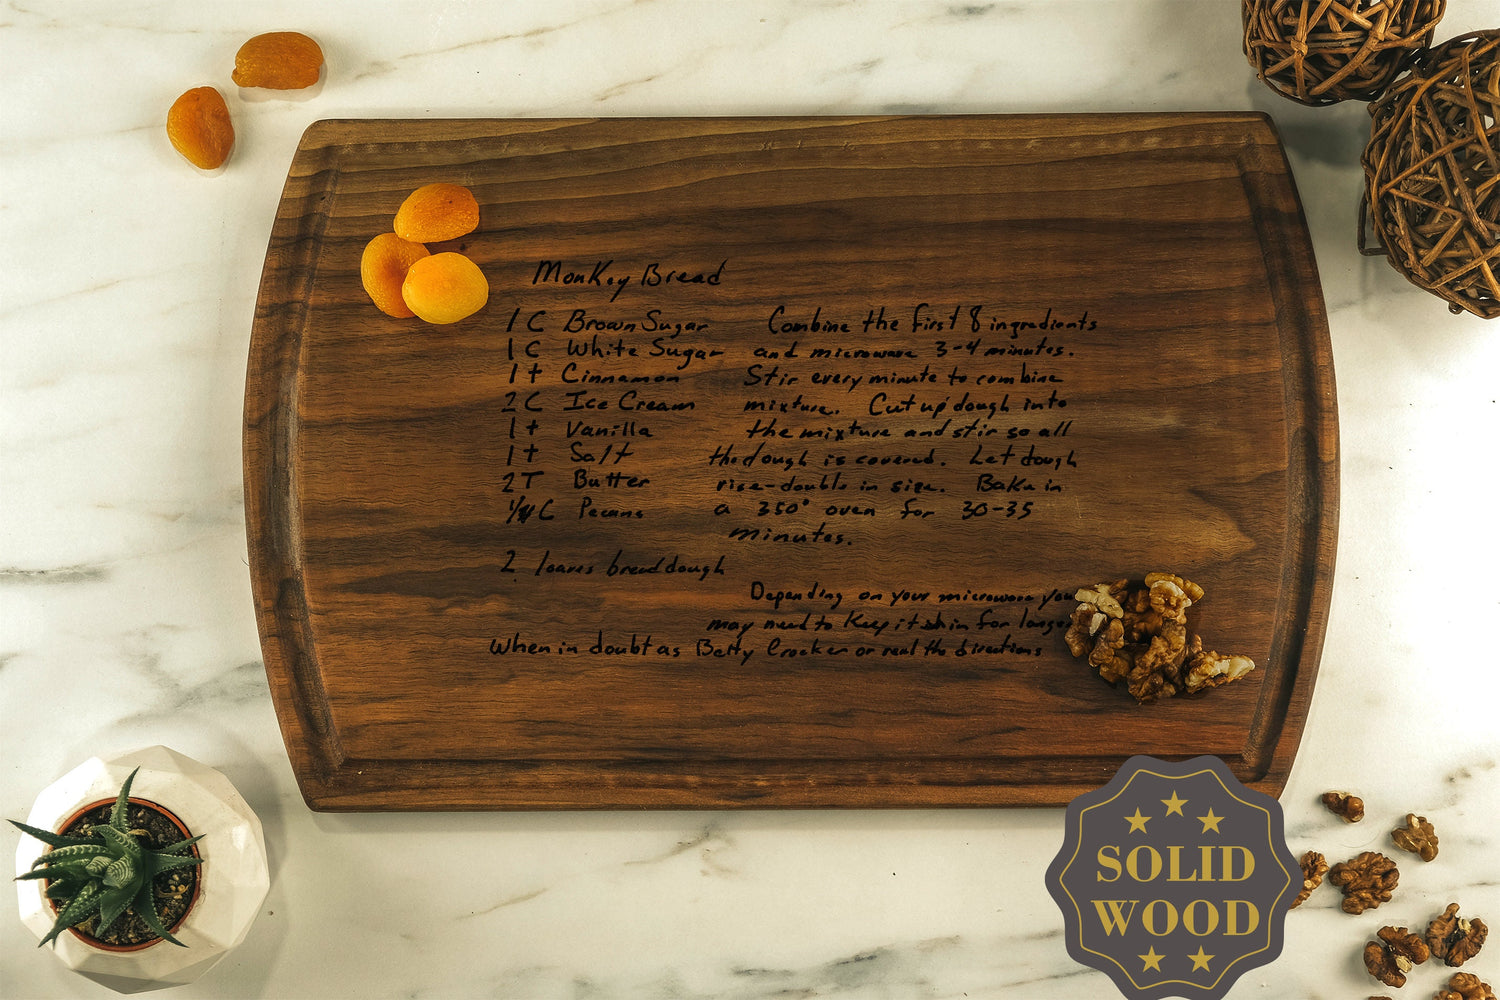 Monkey Bread
1 C Brown Sugar
1 C White Sugar
1 t Cinnamon
2 C Ice Cream
1 t Vanilla
1 t Salt
2 T Butter
1/4 C Pecans
2 loaves bread dough
Combine the first 8 ingredients
and microwave 3-4 minutes.
Stir every minute to combine
mixture. Cut up dough into
the mixture and stir so all
the dough is covered. Let dough
rise-double in size. Bake in
a 350° oven for 30-35
minutes.
Depending on your microwave you
may need to keep it in for longer
When in doubt as Betty Crocker or read the directions
SOLID
WOOD